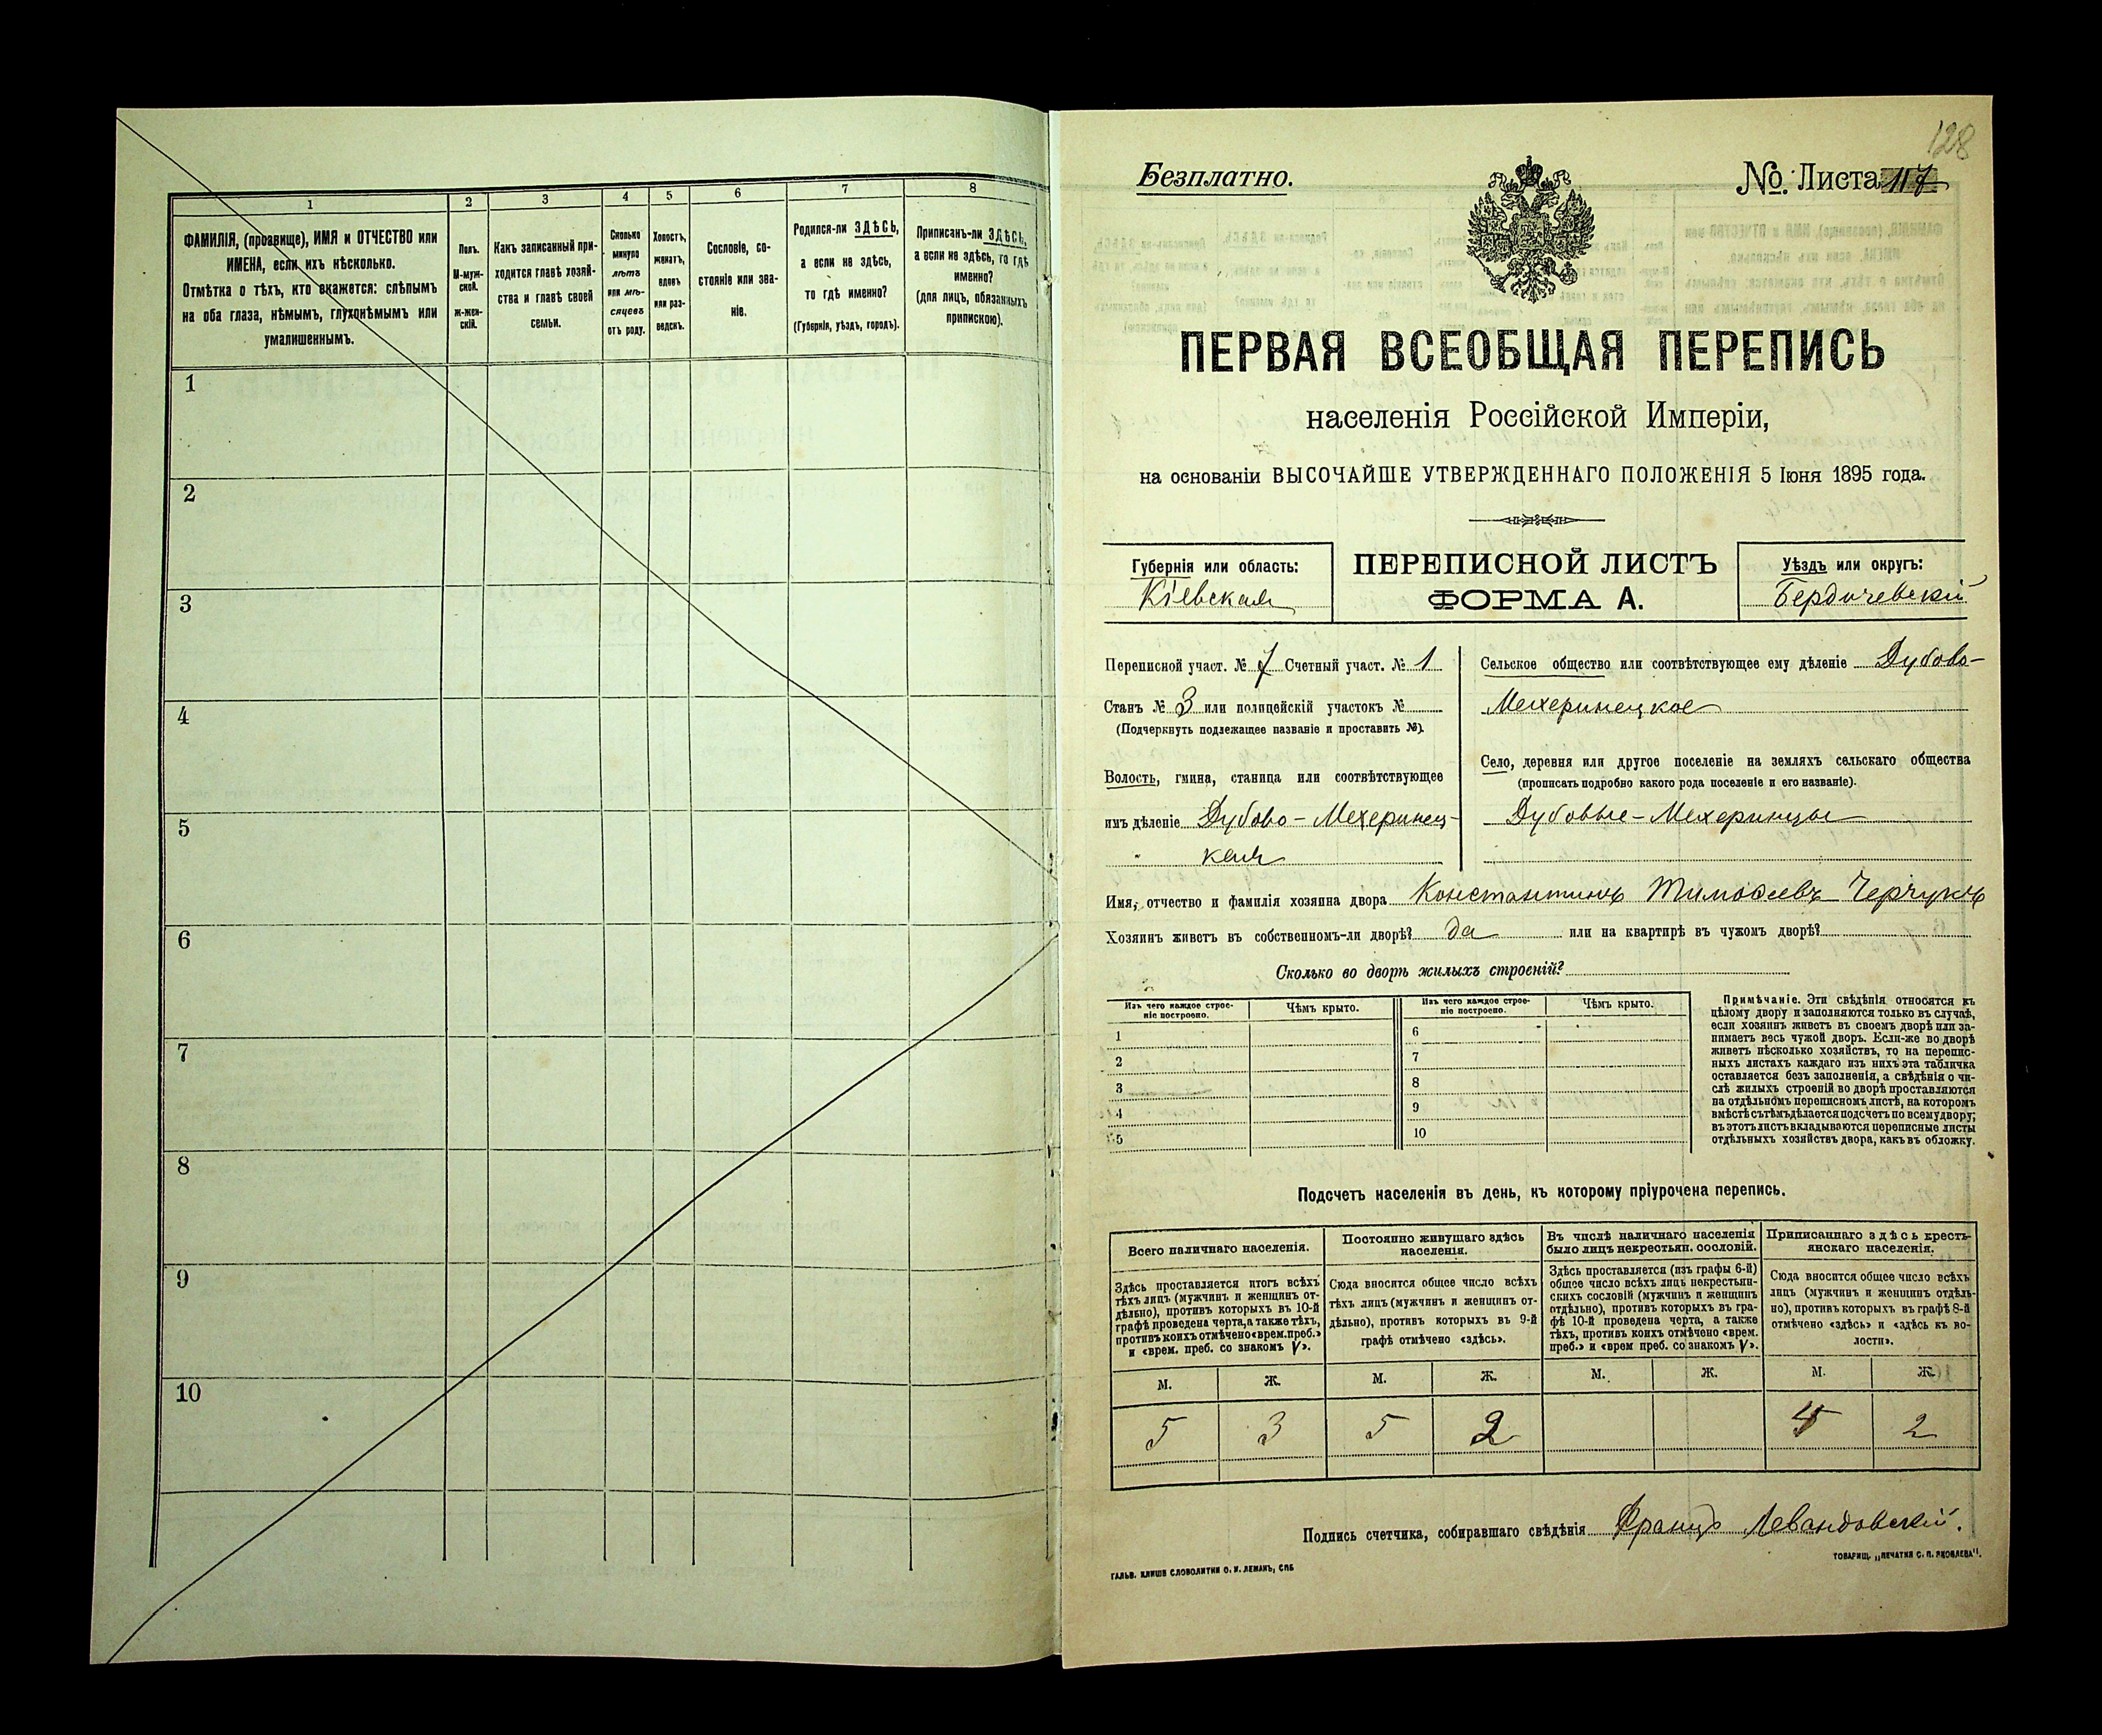 1
2
3
4
5
6
7
8
ФАМИЛІЯ, (прозвище), ИМЯ и ОТЧЕСТВО или
ИМЕНА, если ихъ нѣсколько.
Отмѣтка о тѣхъ, кто окажется: слѣпымъ
на оба глаза, нѣмымъ, глухонѣмымъ или
умалишеннымъ.
Полъ.
М-муж-
ской.
ж-жен-
скій.
Какъ записанный при-
ходится главѣ хозяй-
ства и главѣ своей
семьи.
Сколько
минуло
лѣтъ
или мѣ-
сяцевъ
отъ роду.
Холостъ,
женатъ,
вдовъ
или раз-
ведснъ.
Сословіе, со-
стояніе или зва-
ніе.
Родился-ли ЗДѢСЬ,
а если не здѣсь,
то гдѣ именно?
(Губернія, уѣздъ, городъ).
Приписанъ-ли ЗДѢСЬ,
а если не здѣсь, то гдѣ
именно?
(для лицъ, обязанныхъ
припискою).
1
2
3
4
5
6
7
8
9
10
128
Безплатно.
№ Листа 117
ПЕРВАЯ ВСЕОБЩАЯ ПЕРЕПИСЬ
населенія Россійской Имперіи,
на основаніи ВЫСОЧАЙШЕ УТВЕРЖДЕННАГО ПОЛОЖЕНІЯ 5 Іюня 1895 года.
Губернія или область:
Кіевская
ПЕРЕПИСНОЙ ЛИСТЪ
ФОРМА А.
Уѣздъ или округъ:
Бердичевскій
Переписной участ. № 7 Счетный участ. № 1
Станъ № 3 или полицейскій участокъ №
(Подчеркнуть подлежащее названіе и проставить №).
Волость, гмина, станица или соотвѣтствующее
имъ дѣленіе Дубово-Мехеринец-
" кая
Сельское общество или соотвѣтствующее ему дѣленіе Дубово-
Мехеринецкое
Село, деревня или другое поселеніе на земляхъ сельскаго общества
(прописать подробно какого рода поселеніе и его названіе).
Дубовые-Мехеринцы
Имя, отчество и фамилія хозяина двора Константинъ Тимоѳеевъ Черчукъ
Хозяинъ живетъ въ собственномъ-ли дворѣ? да или на квартирѣ въ чужомъ дворѣ?
Сколько во дворѣ жилыхъ строеній?
Изъ чего каждое строе-
ніе построено.
Чѣмъ крыто.
Изъ чего каждое строе-
ніе построено.
Чѣмъ крыто.
1
2
3
4
5
6
7
8
9
10
Примѣчаніе. Эти свѣдѣнія относятся къ
цѣлому двору и заполняются только въ случаѣ,
если хозяинъ живетъ въ своемъ дворѣ или за-
нимаетъ весь чужой дворъ. Если-же во дворѣ
живетъ нѣсколько хозяйствъ, то на перепис-
ныхъ листахъ каждаго изъ нихъ эта табличка
оставляется безъ заполненія, а свѣдѣнія о чи-
слѣ жилыхъ строеній во дворѣ проставляются
на отдѣльномъ переписномъ листѣ, на которомъ
вмѣстѣ съ тѣмъ дѣлается подсчетъ по всему двору;
въ этотъ листъ вкладываются переписные листы
отдѣльныхъ хозяйствъ двора, какъ въ обложку.
Подсчетъ населенія въ день, къ которому пріурочена перепись.
Всего наличнаго населенія.
Здѣсь проставляется итогъ всѣхъ
тѣхъ лицъ (мужчинъ и женщинъ от-
дѣльно), противъ которыхъ въ 10-й
графѣ проведена черта, а также тѣхъ,
противъ коихъ отмѣчено «врем. преб.»
и «врем. преб. со знакомъ V».
Постоянно живущаго здѣсь
населенія.
Сюда вносится общее число всѣхъ
тѣхъ лицъ (мужчинъ и женщинъ от-
дѣльно), противъ которыхъ въ 9-й
графѣ отмѣчено «здѣсь».
Въ числѣ наличнаго населенія
было лицъ некрестьян. сословій.
Здѣсь проставляется (изъ графы 6-й)
общее число всѣхъ лицъ некрестьян-
скихъ сословій (мужчинъ и женщинъ
отдѣльно), противъ которыхъ въ гра-
фѣ 10-й проведена черта, а также
тѣхъ, противъ коихъ отмѣчено «врем.
преб.» и «врем преб. со знакомъ V».
Приписаннаго здѣсь кресть-
янскаго населенія.
Сюда вносится общее число всѣхъ
лицъ (мужчинъ и женщинъ отдѣль-
но), противъ которыхъ въ графѣ 8-й
отмѣчено «здѣсь» и «здѣсь къ во-
лости».
М. Ж. М. Ж. М. Ж. М. Ж.
5 3 5 2 2
Подпись счетчика, собиравшаго свѣдѣнія Францъ Левандовскій.
ГАЛЬВ. КЛИШЕ СЛОВОЛИТНИ О. И. ЛЕМАНЪ, СПБ
ТОВАРИЩ. „ПЕЧАТНЯ С. П. ЯКОВЛЕВА".